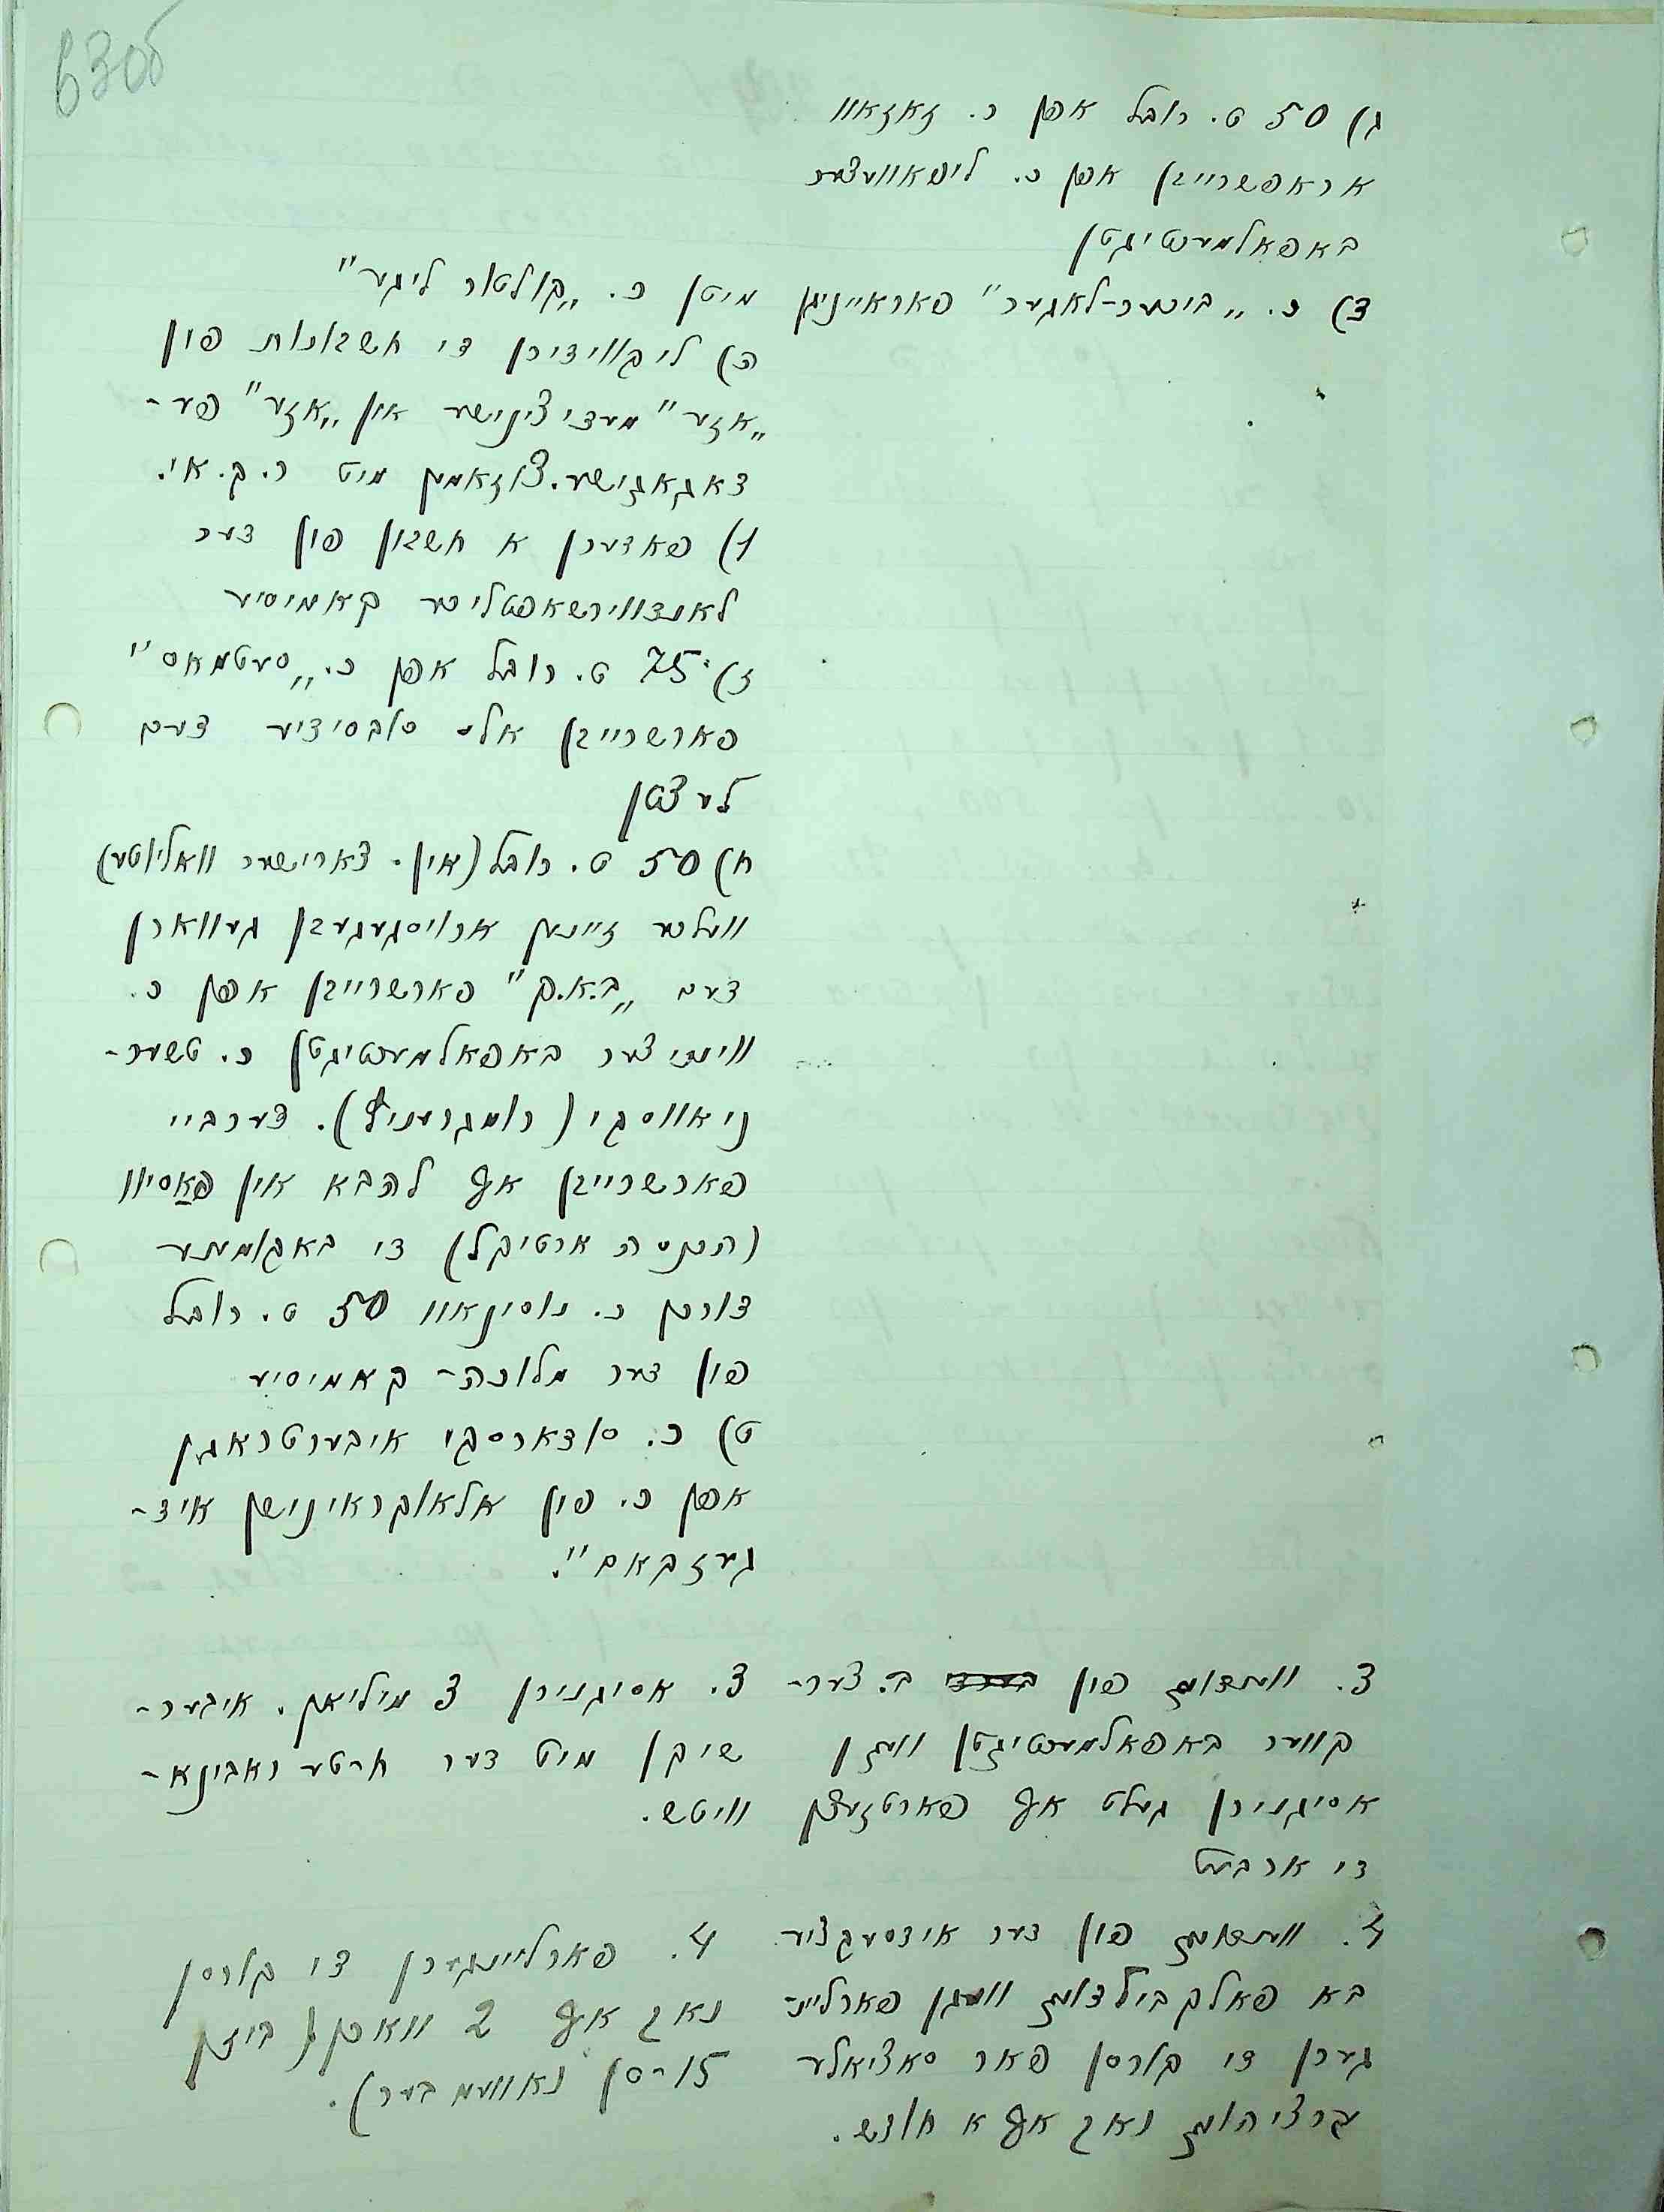 630б
ג) 50 ט. רובל אפן כ. זאזאוו
אראפשרייבן אפן כ. ליפאוועצער
באפאלמעכטיגטן
ד) כ. „ביכער-לאגער" פאראייניגן
מיטן כ. „קולטור ליגע"
ה) ליקווידירן די חשבונות פון
„אזע" מעדיצינישע און „אזע" פע-
דאגאגישע. צוזאמען מיט ר. ק. אי.
ו) פאדערן א חשבון פון דער
לאנדווירשאפטליכע קאמיסיע
ז) 75 ט. רובל אפן כ. „סעטמאס"
פארשרייבן אלס סובסידיע דעם
לעצטן
ח) 50 ט. רובל (אין צארישער וואליוטע)
וועלכע זיינען ארויסגעגעבן געווארן
דעם „ב.א.ק" פארשרייבן אפן כ.
וויניצער באפאלמעכטיגטן כ. טשער-
ניאווסקי (רומגרעניץ). דערביי
פארשרייבן אף להבא אין פאסיוו
(הכנסה ארטיקל) די באקומענע
דורכן כ. נוסינאוו 50 ט. רובל
פון דער מלוכה-קאמיסיע
ט) כ. סודארסקי איבערטראגן
אפן כ. פון אלאוקראינישן איד-
געזקאם".
3. ווענדונג פון ב. צער-
קווער באפאלמעכטיגטן וועגן
אסיגנירן געלט אף פארטזעצן
די ארבעט
3. אסיגנירן 3 מיליאן. איבער-
שיקן מיט דער חרטע ראבינא-
וויטש.
4. ווענדונג פון דער אידסעקציע
בא פאלקבילדונג וועגן פארליינ-
גערן די קורסן פאר סאציאלע
ערציהונג נאך אף א חודש.
4. פארליינגערן די קורסן
נאך אף 2 וואכן (ביזן
15-סן נאוועמבער).